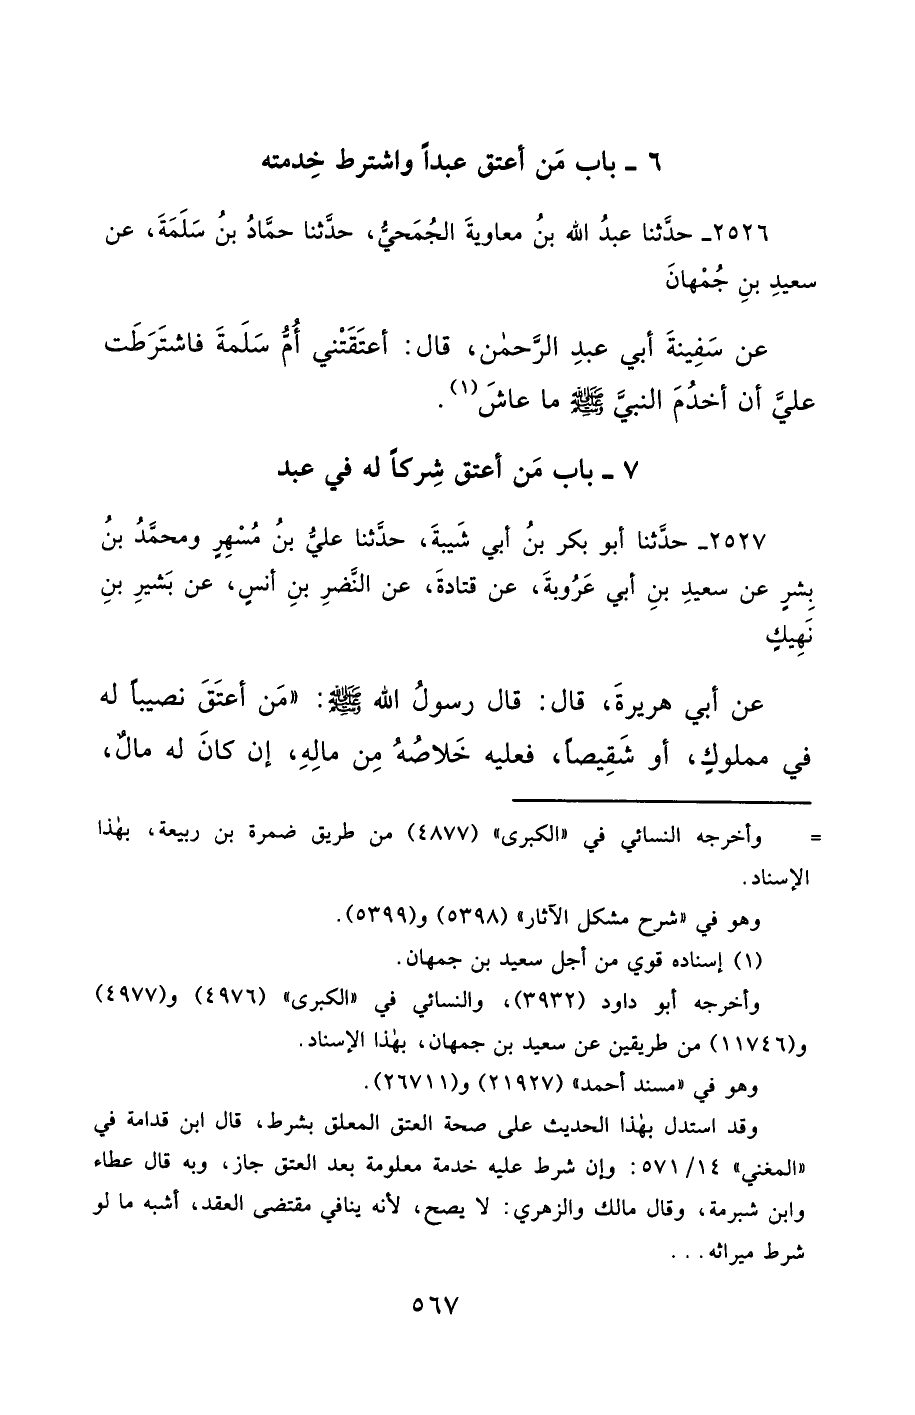 ٦ ـ باب مَن أعتق عبداً واشترط خِدمته
٢٥٢٦ـ حدَّثنا عبدُ الله بنُ معاويةَ الجُمَحيُّ، حدَّثنا حمَّادُ بنُ سَلَمَةَ، عن
سعيدِ بنِ جُمْهانَ
عن سَفِينةَ أبي عبدِ الرَّحمٰن، قال: أعتَقَتْني أُمُّ سَلَمةَ فاشتَرَطَت
عليَّ أن أخدُمَ النبيَّ ﷺ ما عاشَ(١).
٧ ـ باب مَن أعتق شِركاً له في عبد
٢٥٢٧ـ حدَّثنا أبو بكر بنُ أبي شَيبةَ، حدَّثنا عليُّ بنُ مُسْهِرٍ ومحمَّدُ بنُ
بِشرٍ عن سعيدِ بنِ أبي عَرُوبةَ، عن قتادةَ، عن النَّضرِ بنِ أنسٍ، عن بَشيرِ بنِ
نَهِيكٍ
عن أبي هريرةَ، قال: قال رسولُ الله ﷺ: «مَن أعتَقَ نصيباً له
في مملوكٍ، أو شَقِيصاً، فعليه خَلاصُهُ مِن مالِهِ، إن كانَ له مالٌ،
= وأخرجه النسائي في «الكبرى» (٤٨٧٧) من طريق ضمرة بن ربيعة، بهٰذا
الإسناد.
وهو في «شرح مشكل الآثار» (٥٣٩٨) و(٥٣٩٩).
(١) إسناده قوي من أجل سعيد بن جمهان.
وأخرجه أبو داود (٣٩٣٢)، والنسائي في «الكبرى» (٤٩٧٦) و(٤٩٧٧)
و(١١٧٤٦) من طريقين عن سعيد بن جمهان، بهٰذا الإسناد.
وهو في «مسند أحمد» (٢١٩٢٧) و(٢٦٧١١).
وقد استدل بهٰذا الحديث على صحة العتق المعلق بشرط، قال ابن قدامة في
«المغني» ١٤/ ٥٧١: وإن شرط عليه خدمة معلومة بعد العتق جاز، وبه قال عطاء
وابن شبرمة، وقال مالك والزهري: لا يصح، لأنه ينافي مقتضى العقد، أشبه ما لو
شرط ميراثه...
٥٦٧